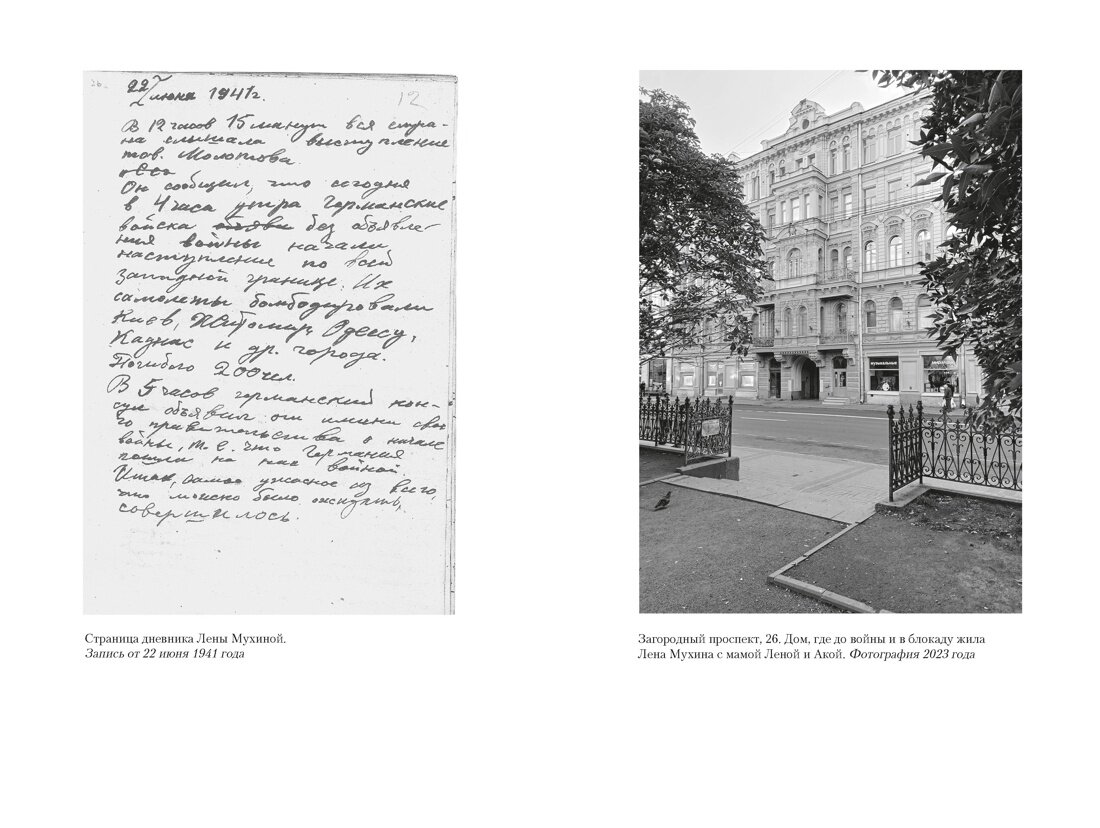 26.
22/
июня 1941 г.
12
В 12 часов 15 минут вся стра-
на слышала выступление
тов. Молотова.
Он сообщил, что сегодня
в 4 часа утра германские
войска объяви без объявле-
ния войны начали
наступление по всей
западной границе. Их
самолеты бомбодировали
Киев, Житомир, Одессу,
Каунас и др. города.
Погибло 200 чел.
В 5 часов германский кон-
сул объявил от имени свое
го правительства о начале
войны, т. е. что Германия
пошла на нас войной.
Итак, самое ужасное из всего,
что можно было ожидать,
совершилось.
Страница дневника Лены Мухиной.
Запись от 22 июня 1941 года
МУЗЫКАЛЬНЫЕ
Загородный проспект, 26. Дом, где до войны и в блокаду жила
Лена Мухина с мамой Леной и Акой. Фотография 2023 года